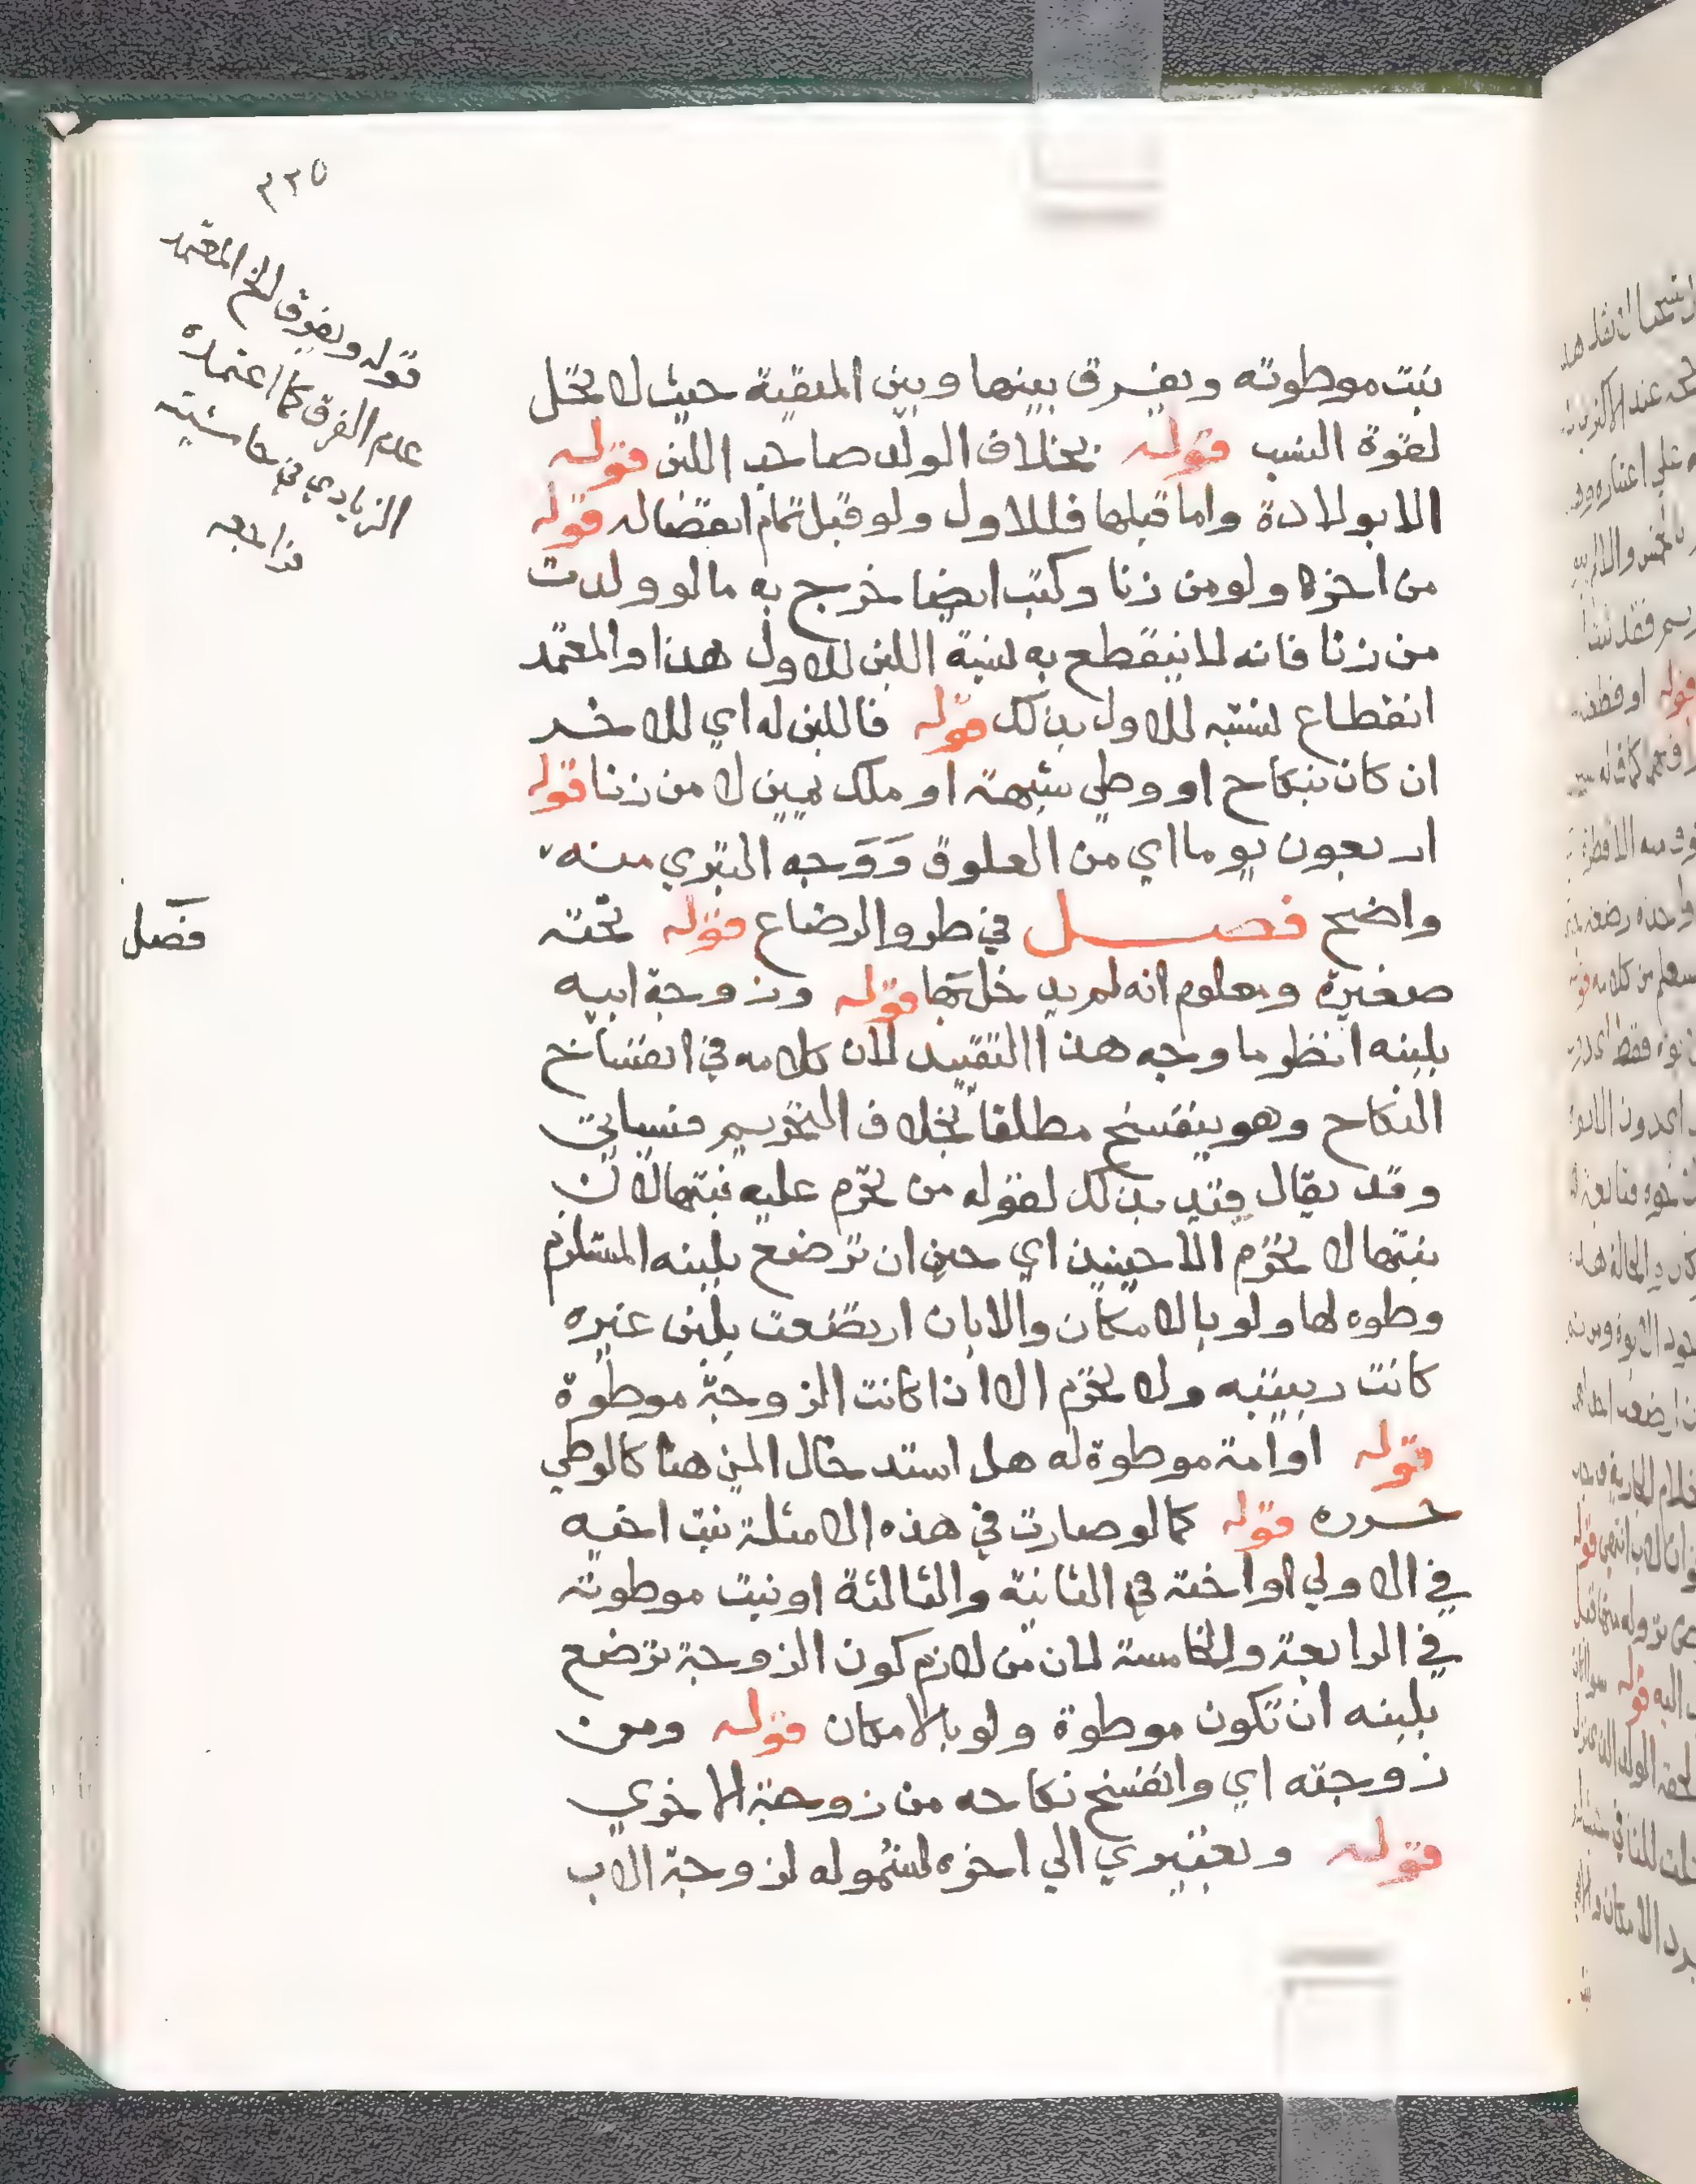 ٣٢٥
قوله ويفرق الخ المعتمد
عدم الفرق كما اعتمده
الزيادي في حاشيته
فراجعه
بنت موطوته ويفرق بينها وبين المنفية حيث لا تحل
لقوة النسب قوله بخلاف الولد صاحب اللبن قوله
الا بولادة واما قبلها فللاول ولو قبل تمام انفصاله قوله
من اخره ولو من زنا وكتب ايضا خرج به ما لو ولدت
من زنا فانه لا ينقطع به نسبة اللبن للاول هذا والمعتمد
انقطاع نسبته للاول بذلك قوله فاللبن له اي للاخر
ان كان بنكاح او وطي شبهة او ملك يمين لا من زنا قوله
اربعون يوما اي من العلوق ووجه التبري منه
واضح فصل في طرو الرضاع قوله تحته
فصل
صغيرة ومعلوم انه لم يدخل بها قوله وزوجة ابيه
بلبنه انظر ما وجه هذا التقييد لان كلامه في انفساخ
النكاح وهو ينفسخ مطلقا بخلاف التحريم فسياتي
وقد يقال قيد بذلك لقوله من تحرم عليه بنتها لان
بنتها لا تحرم الا حينيذ اي حين ان ترضع بلبنه المستلزم
وطوه لها ولو بالامكان والا بان ارتضعت بلبن غيره
كانت ربيبته ولا تحرم الا اذا كانت الزوجة موطوة
قوله او امة موطوة له هل استدخال المني هنا كالوطي
حرره قوله كما لو صارت في هذه الامثلة بنت اخيه
في الاولي او اخته في الثانية والثالثة او بنت موطوته
في الرابعة والخامسة لان من لازم كون الزوجة ترضع
بلبنه ان تكون موطوة ولو بالامكان قوله ومن
زوجته اي وانفسخ نكاحه من زوجة الاخري
قوله وتعبيري الي اخره لشموله لزوجة الاب